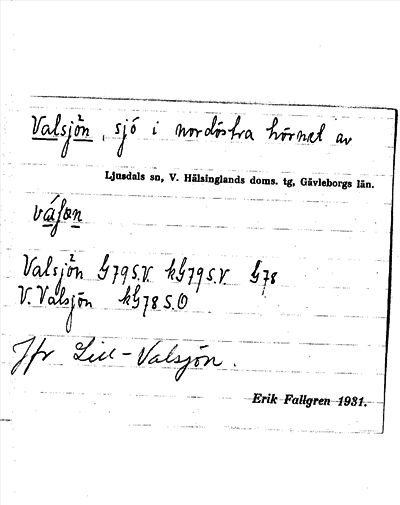 Valsjön, sjö i nordöstra hörnet av
Ljusdals sn, V. Hälsinglands doms. tg, Gävleborgs län.
Valsjön G79S.V. kG79S.V. G78
V. Valsjön kG78S.O
Jfr Lill-Valsjön.
Erik Fallgren 1931.